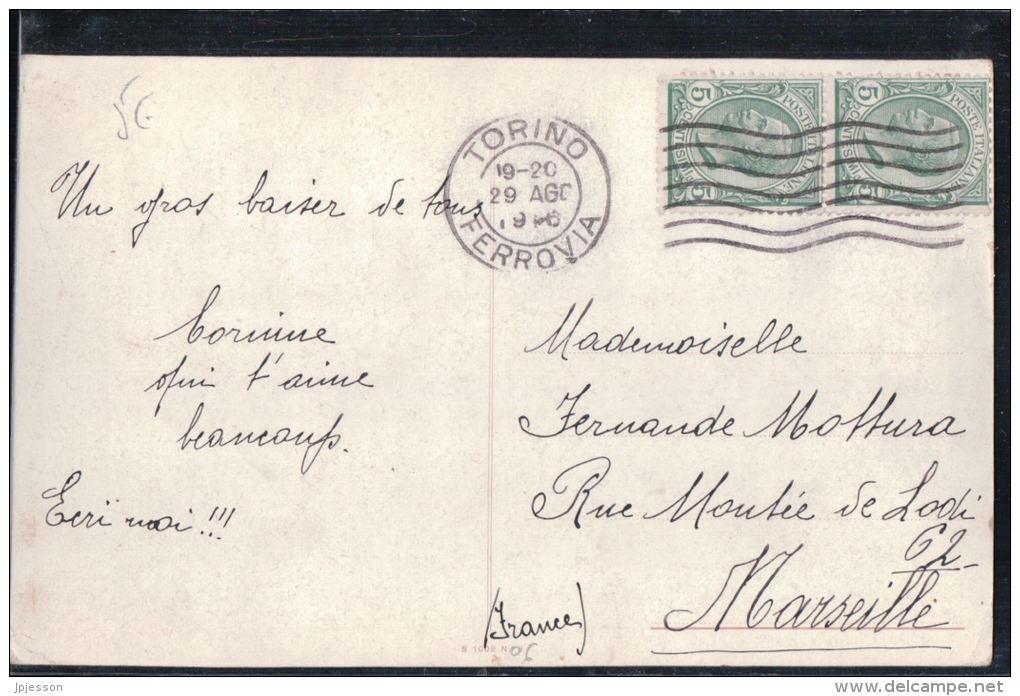 5€
Un gros baiser de tous
Corinne
qui t'aime
beaucoup.
Ecri moi !!!
TORINO
19-20
29 AGO
FERROVIA
POSTE ITALIANE
CENTESIMI
5
5
POSTE ITALIANE
CENTESIMI
5
5
Mademoiselle
Fernande Mottura
Rue Montée de Lodi
62-
Marseille
(France)
06
jpjesson
www.delcampe.net